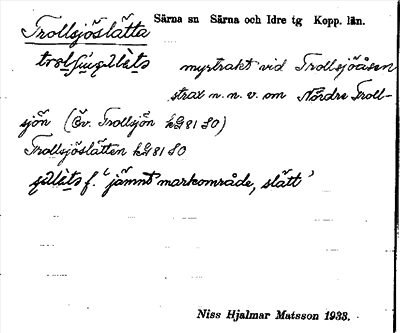 Trollsjöslåtta Särna sn Särna och Idre tg Kopp. län.
myrtrakt vid Trollsjöåsen
strax n. n. v. om Nordre Troll-
sjön (Öv. Trollsjön kG 81 SO)
Trollsjöslåtten kG 81 SO
f. "jämnt markområde, slått"
Niss Hjalmar Matsson 1933.